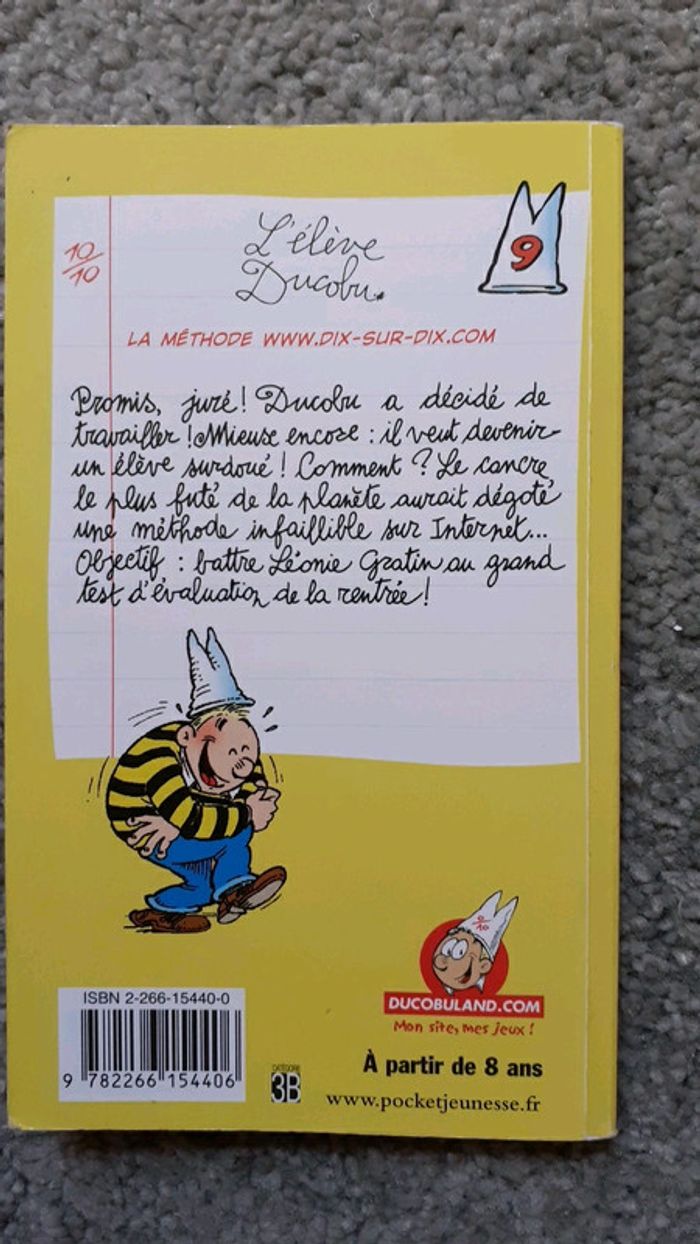 10/10
L'élève
Ducobu.
9
LA MÉTHODE WWW.DIX-SUR-DIX.COM
Promis, juré ! Ducobu a décidé de
travailler ! Mieux encore : il veut devenir
un élève surdoué ! Comment ? Le cancre
le plus futé de la planète aurait dégoté
une méthode infaillible sur Internet...
Objectif : battre Léonie Gratin au grand
test d'évaluation de la rentrée !
0/10
DUCOBULAND.COM
Mon site, mes jeux !
ISBN 2-266-15440-0
9 782266 154406
CATÉGORIE
3B
À partir de 8 ans
www.pocketjeunesse.fr